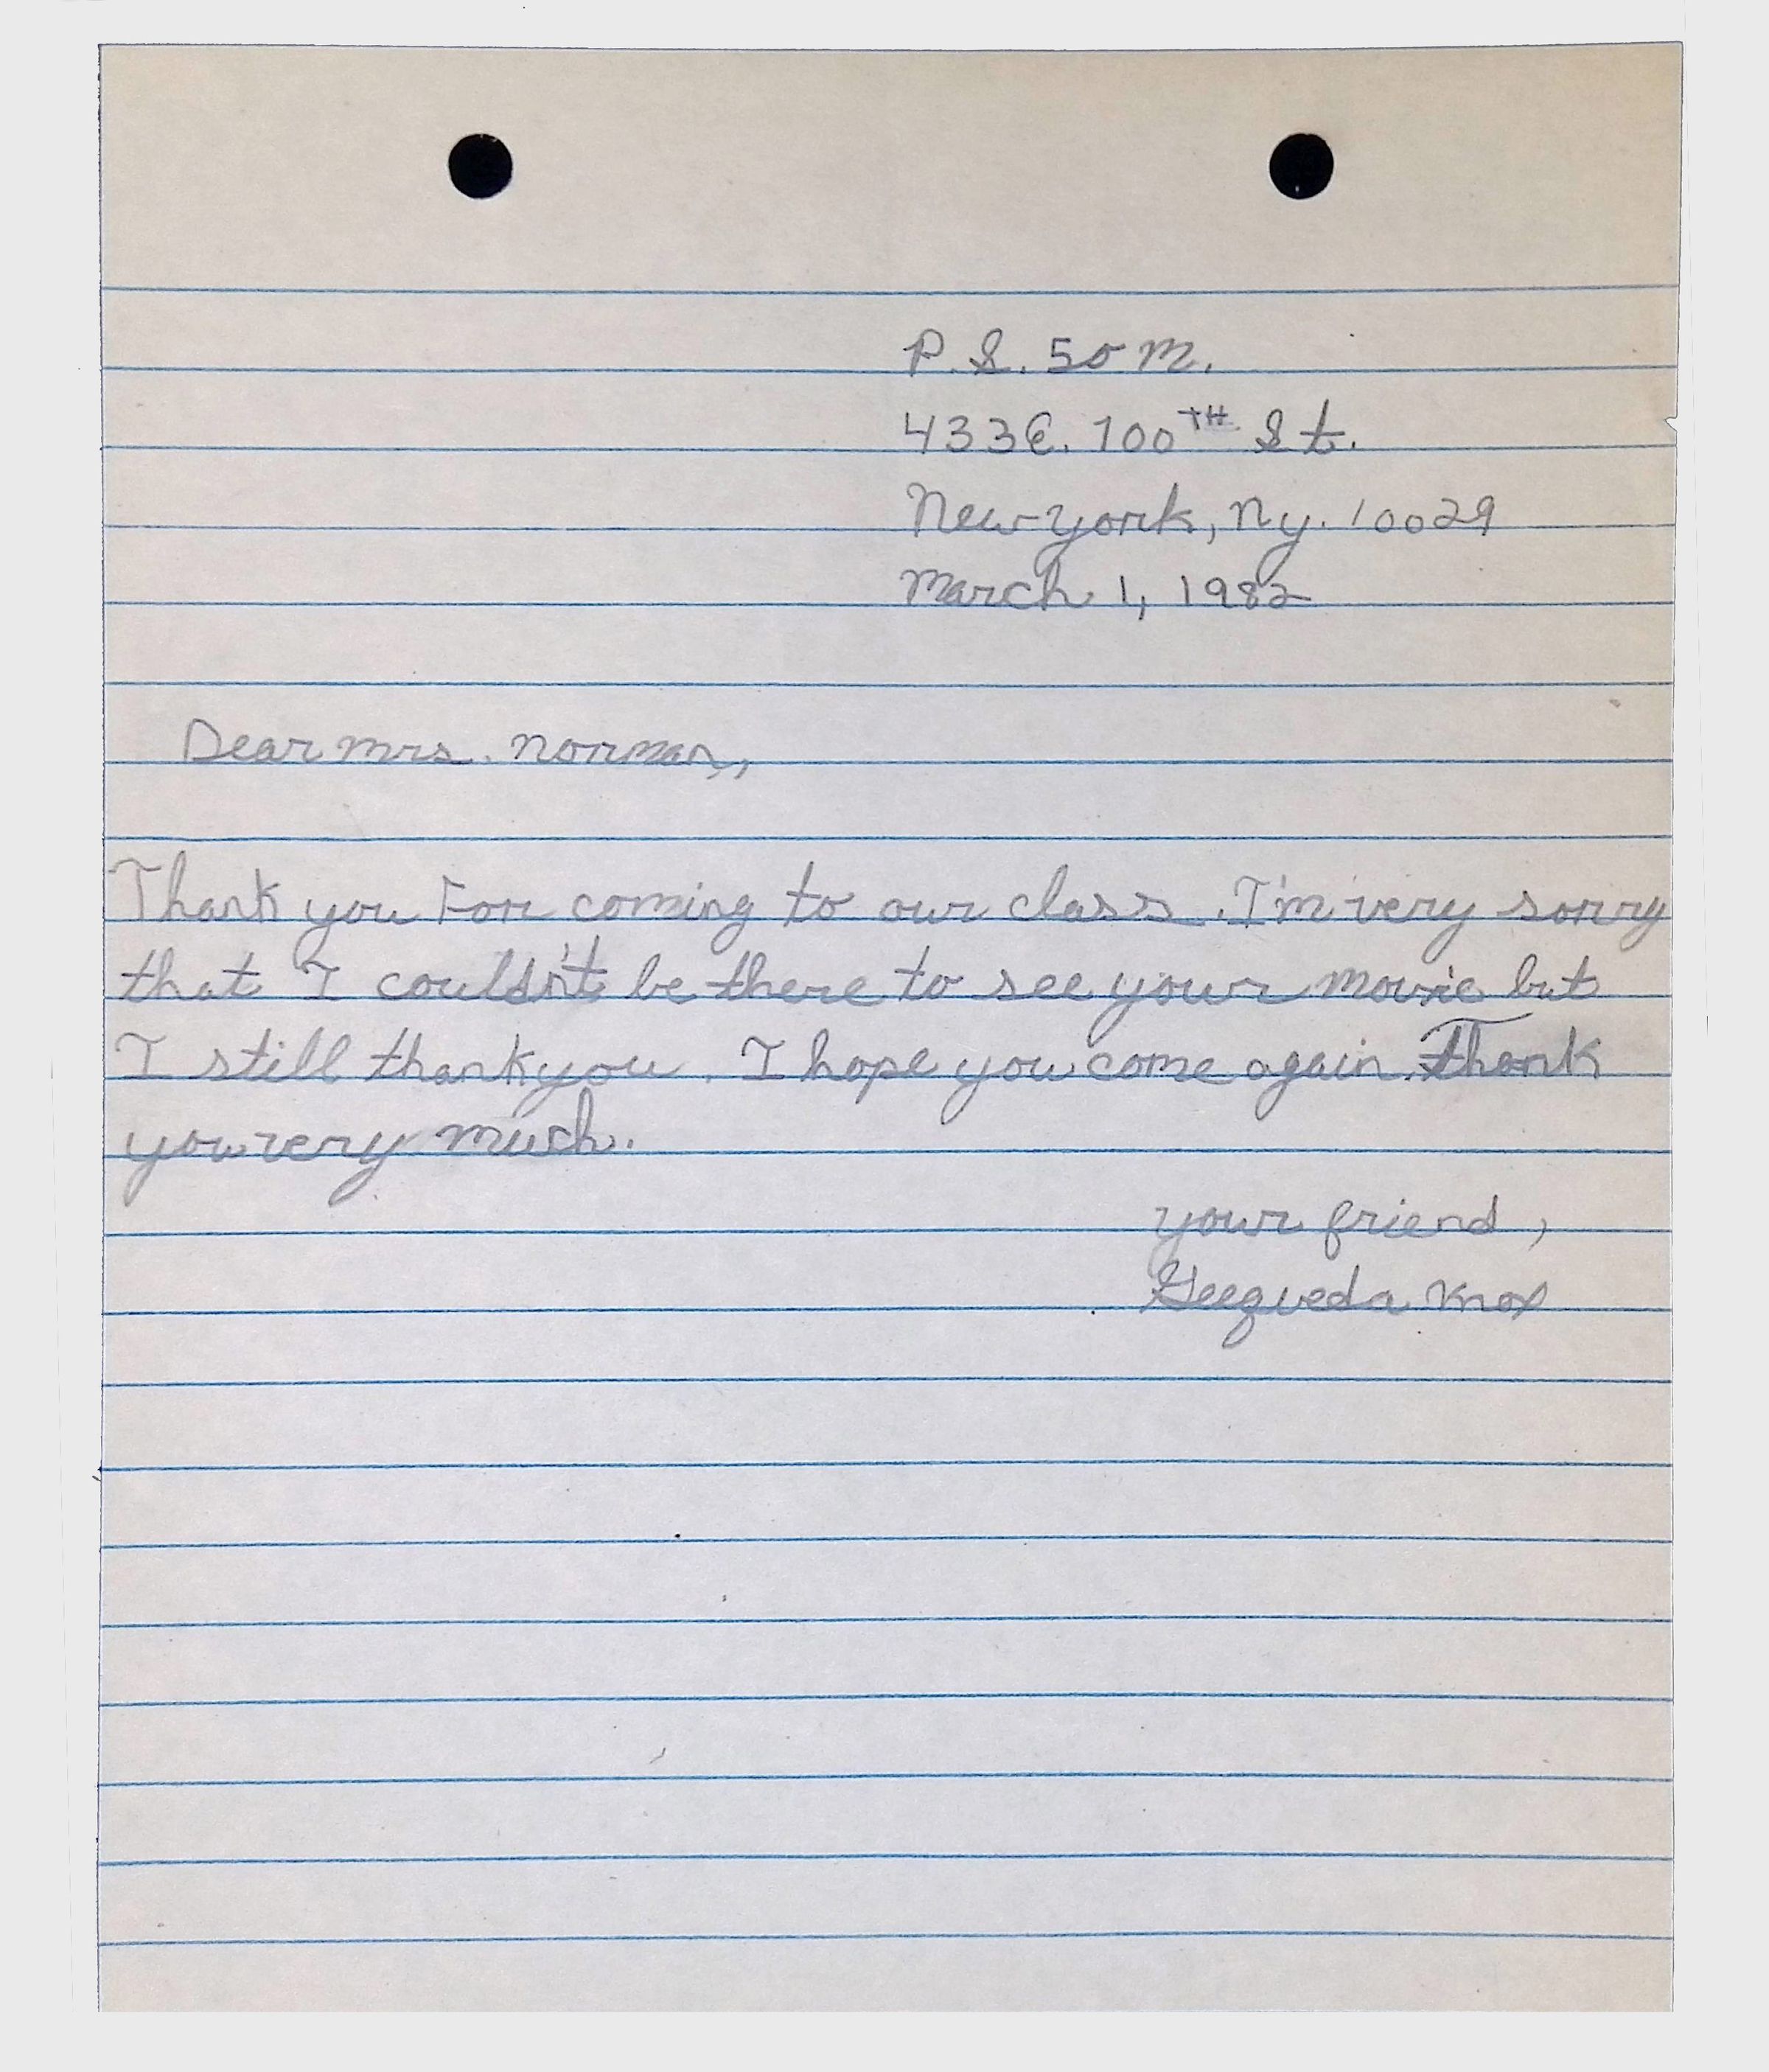 P.S. 50 M.
433 E. 100TH St.
New York, Ny. 10029
March 1, 1982
Dear Mrs. Norman,
Thank you For coming to our class. I'm very sorry
that I couldn't be there to see your movie but
I still thank you. I hope you come again. Thank
you very much.
your friend,
Geeqveda Knox